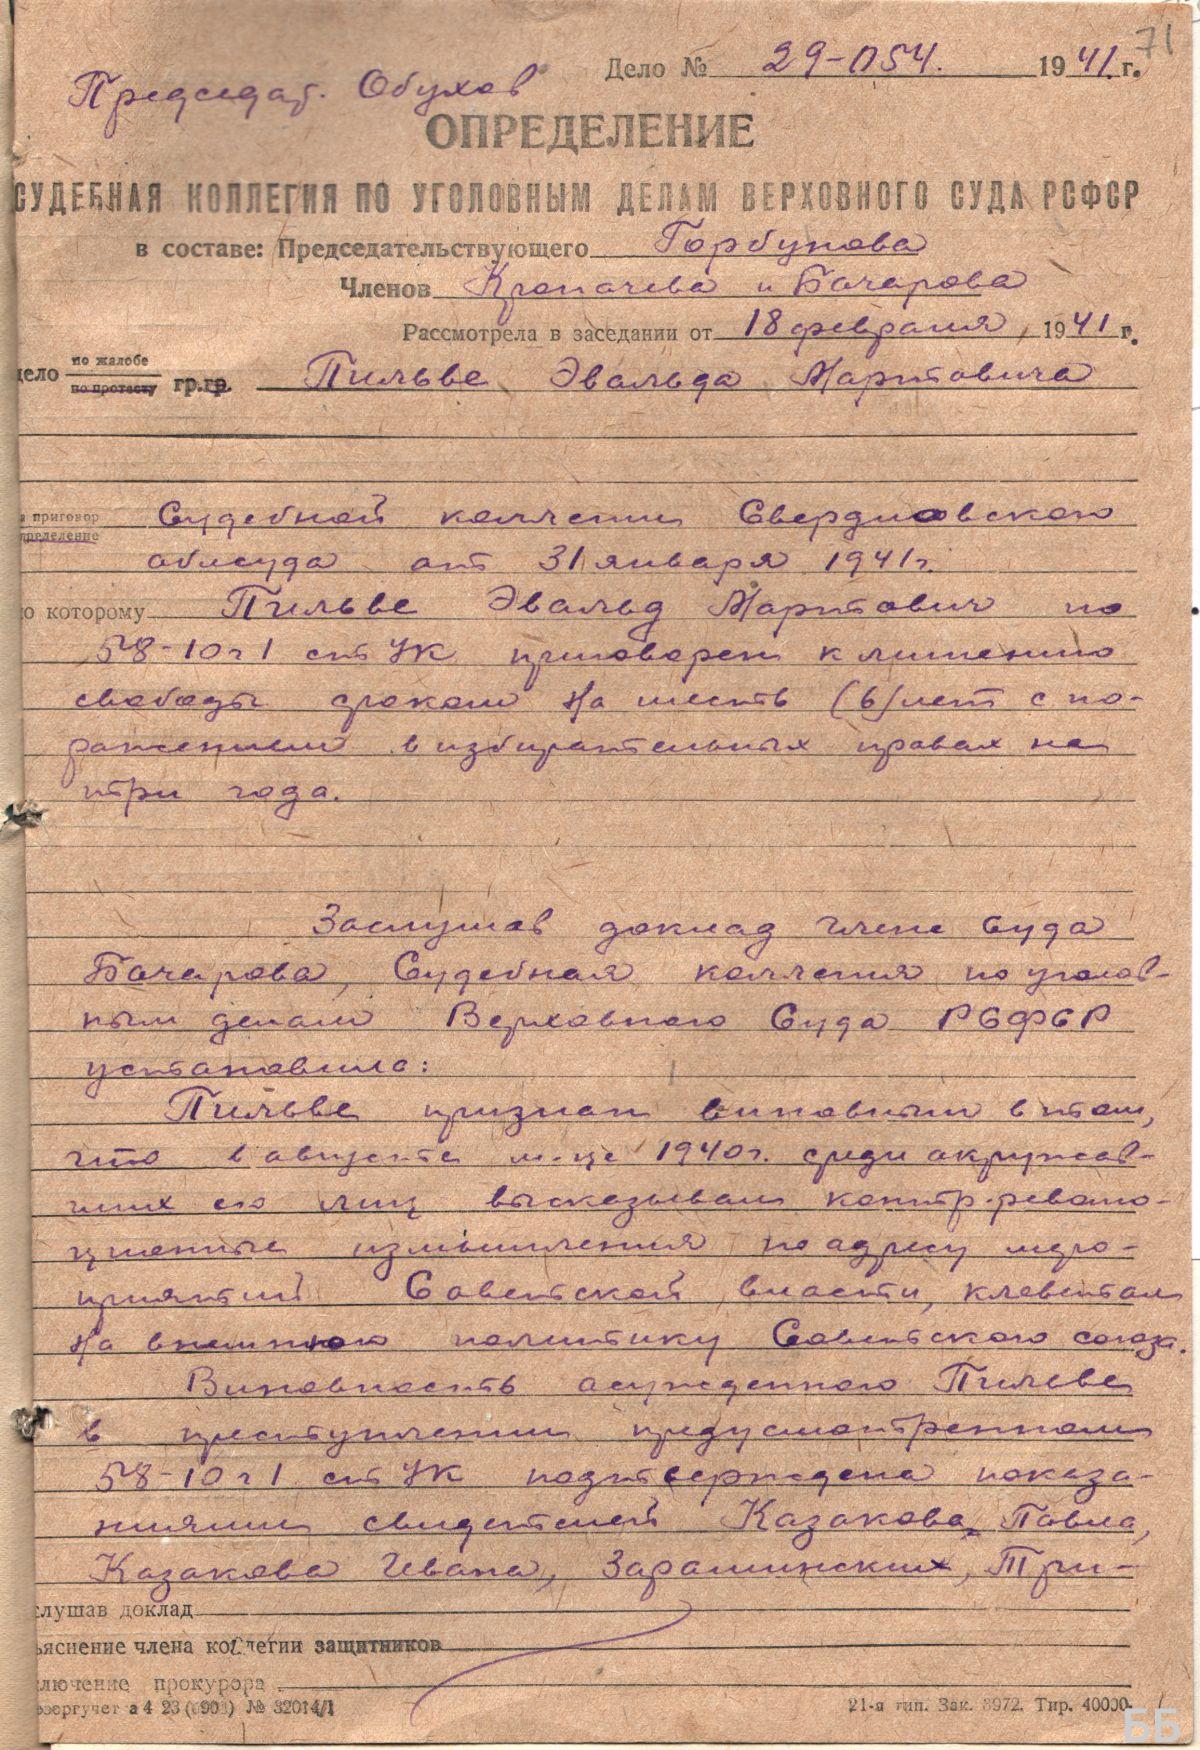 71
Дело № 29-054. 1941. г.
Председат. Обухов
ОПРЕДЕЛЕНИЕ
СУДЕБНАЯ КОЛЛЕГИЯ ПО УГОЛОВНЫМ ДЕЛАМ ВЕРХОВНОГО СУДА РСФСР
в составе: Председательствующего Горбунова
Членов Кропачева и Бачарова
Рассмотрела в заседании от 18 февраля 1941 г.
дело по жалобе
по протесту гр.гр. Пильве Эвальда Мартовича
а приговор Судебной коллегии Свердловского
пределение
облсуда от 31 января 1941г.
о которому Пильве Эвальд Мартович по
58-10 ч 1 ст УК приговорен к лишению
свободы сроком на шесть (6) лет с по-
ражением в избирательных правах на
три года.
Заслушав доклад члена Суда
Бачарова, Судебная коллегия по уголов-
ным делам Верховного Суда РСФСР
установила:
Пильве признан виновным в том,
что в августе м-це 1940г. среди окружав-
ших его лиц высказывал контр-револю-
ционные измышления по адресу меро-
приятий Советской власти, клеветал
на внешнюю политику Советского союза.
Виновность осужденного Пильве
в преступлении предусмотренном
58-10 ч 1 ст УК подтверждена показа-
ниями свидетелей Казакова Павла,
Казакова Ивана, Зараминских, Три-
слушав доклад
ъяснение члена коллегии защитников
ключение прокурора
21-я тип. Зак. 3972. Тир. 40000-
ББ